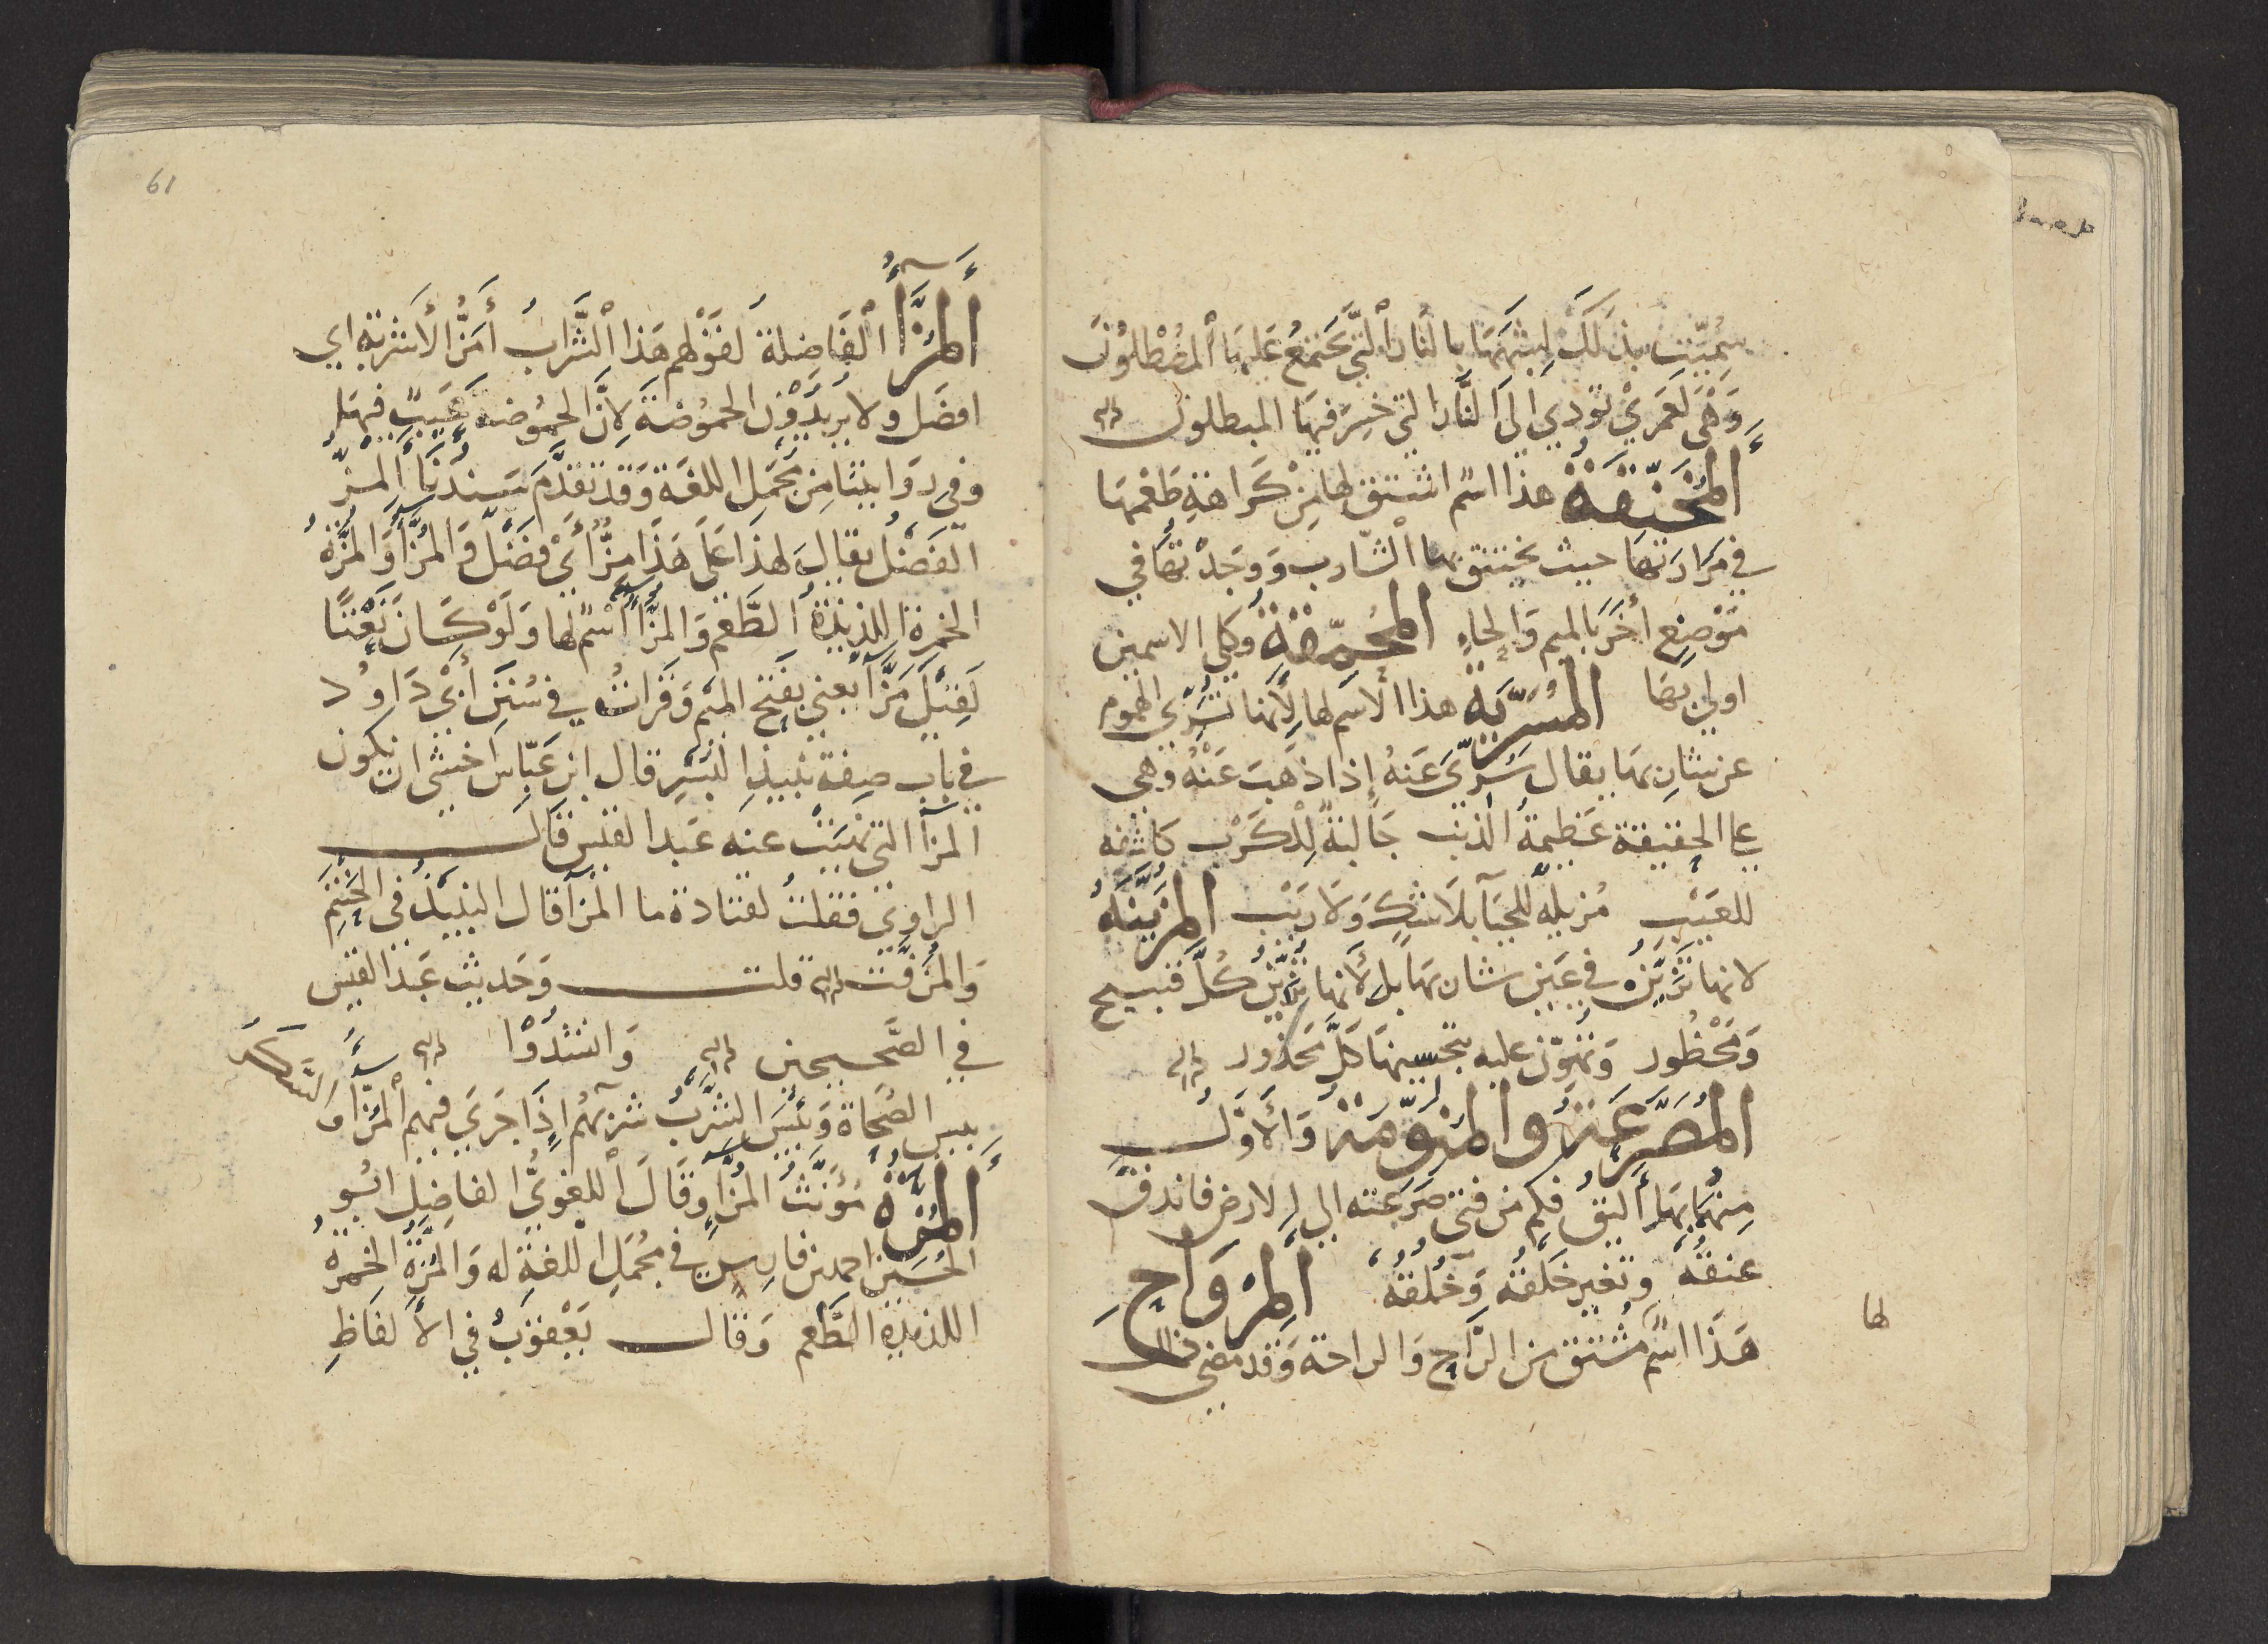 سُمِّيَت بِذلِكَ لِشبهِهَا بِالنَّار الَّتي تَجتمعُ عَليهَا اَلمُصْطلُونَ
وَهْيَ لَعَمري تؤدي الى النَّار التي خَسِرَ فيهَا المبطلون
اَلمُخَنِّقَةُ هذا اسم اشتق لها مِنْ كَرَاهَةِ طَعْمِهَا
في مَرَارَتهَا حيث يختنق بها الشّارب وَوَجَدْتهَا في
مَوْضِعِ أخَرَ بالميم وَالحاءِ المُحَمِّقةُ وكلي الاسمين
اولي بهَا المُسَرِّيَةُ هذا الاسم لها لأنّها تُسَرِّي الهموم
عن شانِيهَا يقال سُرِّيَ عَنهُ إذا ذَهبَ عَنْهُ وَهي
علي الحقيقة عَظيمةُ الذنب جَالبَةٌ لِلْكَرْبِ كاشفه
للعَيْبِ مُزيلةٌ للحيَآ بلَا شكٍّ وَلَا رَيْب المُزَيّنَةُ
لانها تُزَيَّنُ في عَيْنِ شان بهَا بل لأنها تُزَيِّنُ كُلَّ قبيح
وَمَحْظُور وَتُهَوِّن عليه بتحسِينهَا كُلَّ مَحذور
المُصَرِّعَةُ وَالمُنَوِّمَةُ وَالأَوَّلُ
مِنهُمَا بهَا أليَقُ فكم من فتى صَرَعَته الي الارض فاندقّ
عنقُهُ وَتغير خَلقُهُ وَخُلُقُهُ اَلمِرْوَاحِ
لها
هَذَا اسْمٌ مُشتق من الرَّاحِ وَالراحة وَقد مضى ذلك
61
اَلمُزَّآءُ الفَاضِلَةُ لقَوْلهم هَذا الشَّرابُ أَمَزُّ الأَشربةِ اي
افضَل ولا يُريدُوْن الحمُوْضَةَ لِأَنَّ الحمُوُضه عَيبٌ فيهَا
وَفي رِوَايتنَا مِن مجْمَلِ اللغَة وَقد تقدَّمَ سَندُنَا اَلمزُّ
الفَضْلُ يقال لهذَا عَلَى هَذَا مِزٌّ أَيْ فَضْلٌ وَالمُزَّآءُ وَالمُزَّةُ
الخمرة اللذيذةُ الطَّعم وَالمزَّآءُ اسْم لها وَلَوْ كَانَ نَعْتًا
لَقِيْلَ مَزَّآءُ يعني بفتح الميْم وَقرَاتُ في سُنَنِ أَبْيْ دَاوُد
في بَاب صِفةِ نبيذِ البُسْرِ قال ابن عَبَّاس اخشى ان يكون
المزآ التي نهيَت عنه عَبد القيس قَال
الراوي فقلتُ لقتادة ما المزآ قال النبيذ في الحَنْتمِ
وَالمُزَفَّت قلت وَحَديث عَبد القيس
في الصَّحيحين وَانشدُوْا
بيس الصُّحَاة وَبئسَ الشَّربُ شربهُم إِذَا جَري فيهم المُزَّآ وَالسَّكَرُ
اَلمُزَّةُ مُؤَنَّثُ المُزّآ وَقَالَ اللغويُّ الفاضِل ابُو
الحُسَيْن احمد بن فَارِسٍ في مُجْمَلِ اللغَةِ له وَالمُزَّةُ الخمرةُ
اللذيذة الطَّعم وَقال يَعْقُوبُ في الأَلفَاظِ